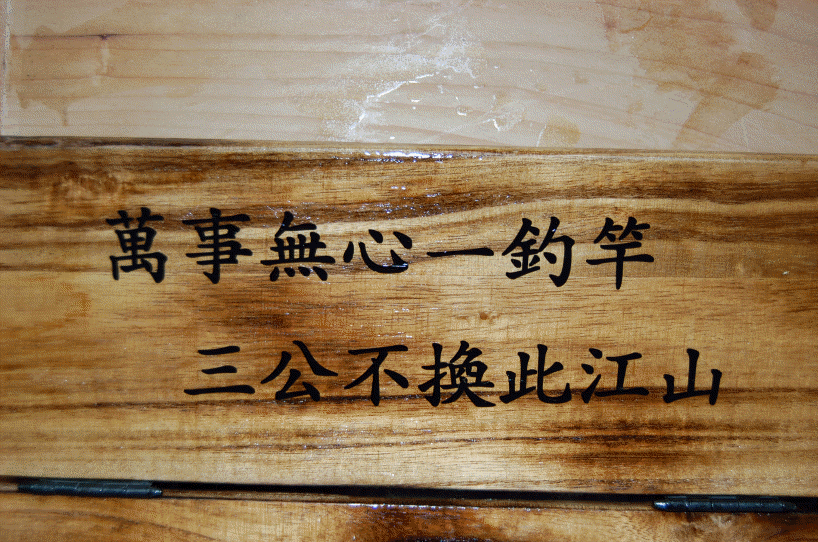 萬事無心一釣竿
三公不換此江山